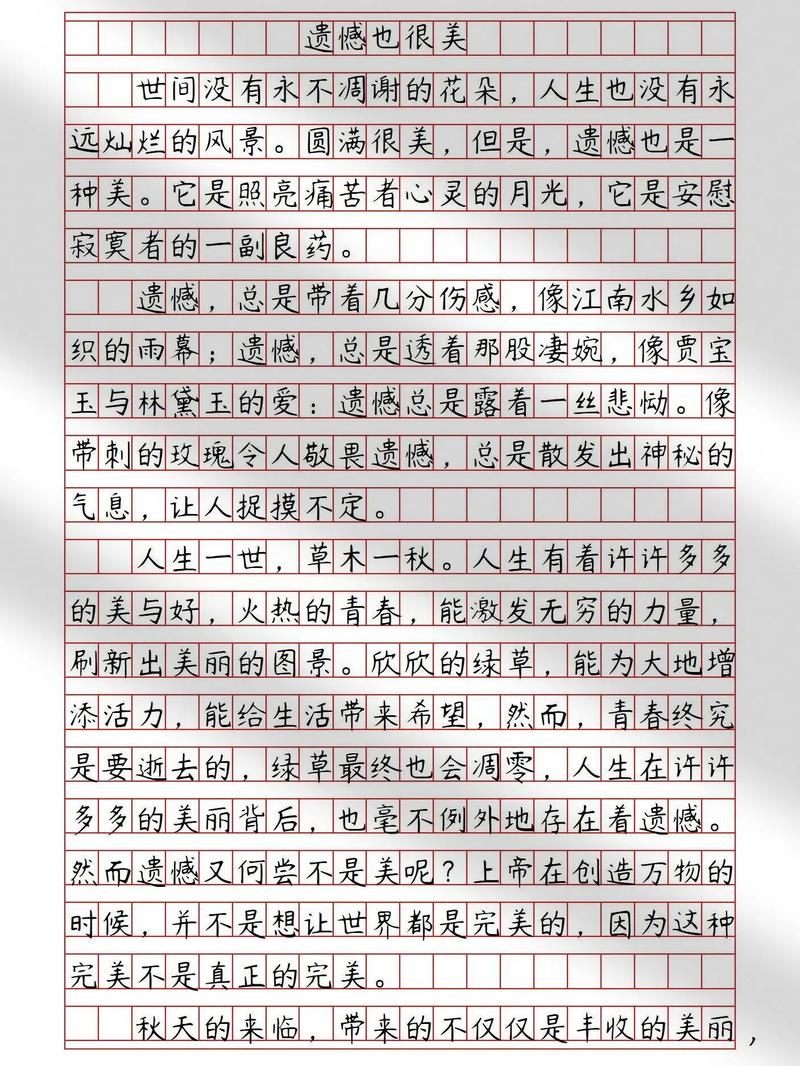 遗憾也很美
世间没有永不凋谢的花朵，人生也没有永
远灿烂的风景。圆满很美，但是，遗憾也是一
种美。它是照亮痛苦者心灵的月光，它是安慰
寂寞者的一副良药。
遗憾，总是带着几分伤感，像江南水乡如
织的雨幕；遗憾，总是透着那股凄婉，像贾宝
玉与林黛玉的爱：遗憾总是露着一丝悲恸。像
带刺的玫瑰令人敬畏遗憾，总是散发出神秘的
气息，让人捉摸不定。
人生一世，草木一秋。人生有着许许多多
的美与好，火热的青春，能激发无穷的力量，
刷新出美丽的图景。欣欣的绿草，能为大地增
添活力，能给生活带来希望，然而，青春终究
是要逝去的，绿草最终也会凋零，人生在许许
多多的美丽背后，也毫不例外地存在着遗憾。
然而遗憾又何尝不是美呢？上帝在创造万物的
时候，并不是想让世界都是完美的，因为这种
完美不是真正的完美。
秋天的来临，带来的不仅仅是丰收的美丽，